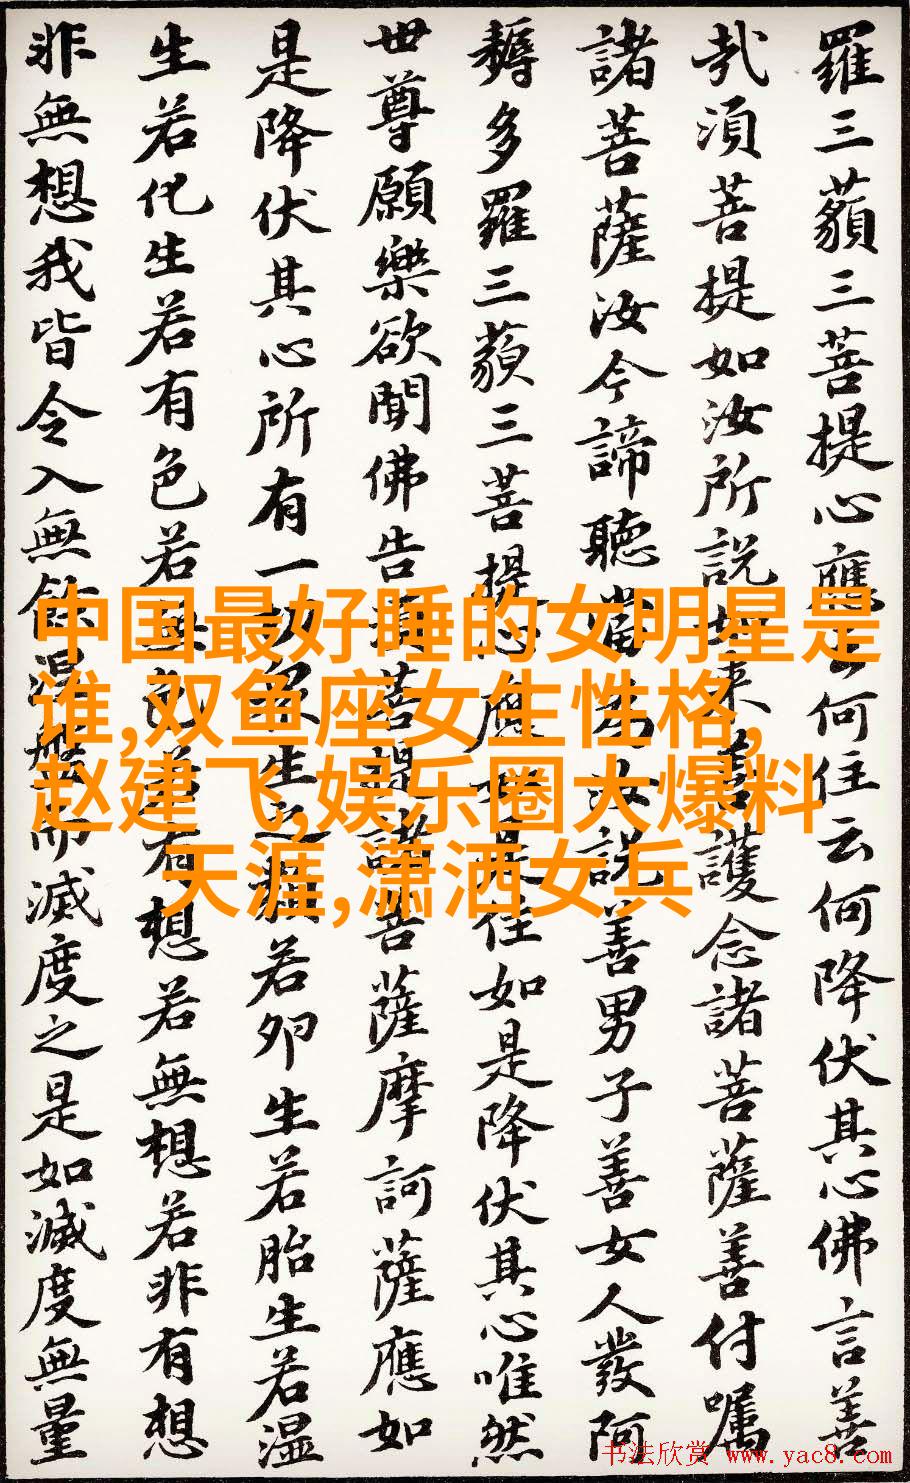 羅三藐三菩提心應云何住云何降伏其心佛言善
哉須菩提如汝所説如来善護念諸菩薩善付嘱
諸菩薩汝今諦聽當為汝説善男子善女人發阿
耨多羅三藐三菩提心應如是住如是降伏其心唯然
世尊願樂欲聞佛告須菩提諸菩薩摩訶薩應如
是降伏其心所有一切衆生之類若卵生若胎生若温
生若化生若有色若無色若有想若無想若非有想
非無想我皆令入無餘涅槃而滅度之是如滅度無量
中国最好睡的女明星是
谁,双鱼座女生性格,
赵建飞,娱乐圈大爆料
天涯,潇洒女兵
书法欣赏 www.yac8.com